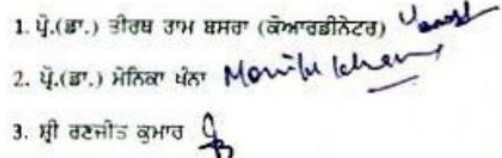 1. ਪ੍ਰੋ.(ਡਾ.) ਤੀਰਥ ਰਾਮ ਬਸਰਾ (ਕੋਆਰਡੀਨੇਟਰ)
2. ਪ੍ਰੋ.(ਡਾ.) ਮੋਨਿਕਾ ਖੰਨਾ Monika Khanna
3. ਸ਼੍ਰੀ ਰਣਜੀਤ ਕੁਮਾਰ